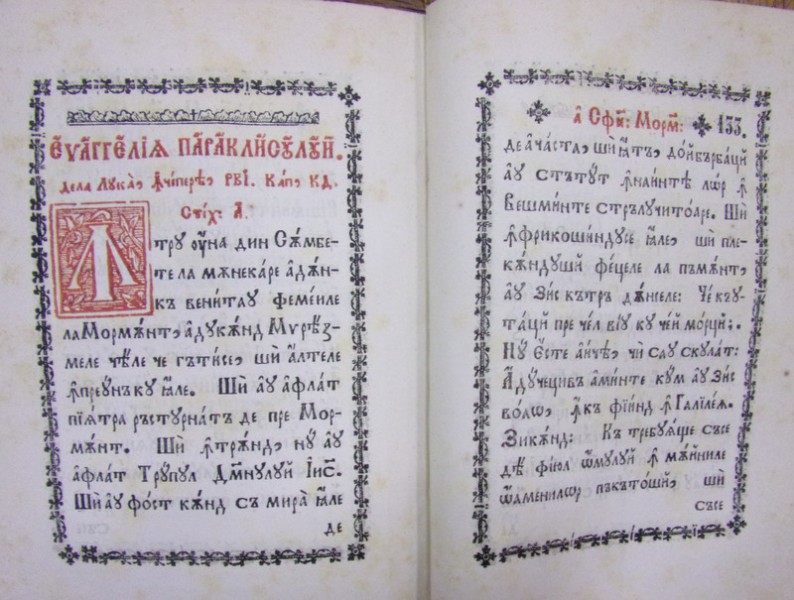 Є҆ѵа҆ггелїѧ Пара҆кли́сꙋлꙋй.
дела Лꙋка̀, ꙟ҆чѣпере, РВІ. Кап҆, КД.
Стїх: А҃.
Ꙟтрꙋ ѹ҆на дин Сѫмбе-
те ла мѫнекаре а҆дѫн-
къ венитаꙋ фемеиле
ла Мормѫнт, а҆дꙋкѫнд Мѵрѣз-
меле чѣле че гътисе, шѝ а҆лтеле
ꙟ҆преꙋнъ кꙋ ꙗ҆ле. Шѝ аꙋ а҆флат
пїѧтра ръстꙋрнатъ де пре Мор-
мѫнт. Шѝ ꙟ҆трѫнд, нꙋ аꙋ
а҆флат Трꙋпꙋл Дм҃нꙋлꙋй Іи҃с.
Шѝ аꙋ фост кѫнд съ мира ꙗ҆ле
де
а҆ Сф҃: Морм҃: 133.
де а҆часта, шѝ ꙗ҆тъ, дой бърбаци
аꙋ стътꙋт ꙟ҆наинте лѡр ꙟ҆
вешминте стрълꙋчитоаре. Шѝ
ꙟ҆фрикошиндꙋсе ꙗ҆ле, шѝ пле-
кѫндꙋшѝ фецеле ла пъмѫнт,
аꙋ зис кътръ дѫнселе: Че кꙋ-
тацѝ пре чел вїꙋ кꙋ чей морцѝ;
Нꙋ є҆сте а҆иче, чи саꙋ скꙋлат:
А҆дꙋчецивъ а҆минте кꙋм аꙋ зис
воаѡ, ꙟ҆къ фїинд ꙟ҆ Галїлеѧ.
Зикѫнд: Къ требꙋꙗще съсе
дѣ фїюл ѡ҆мꙋлꙋй ꙟ҆ мѫйниле
ѡ҆аменилѡр пъкътошѝ, шѝ
съсе